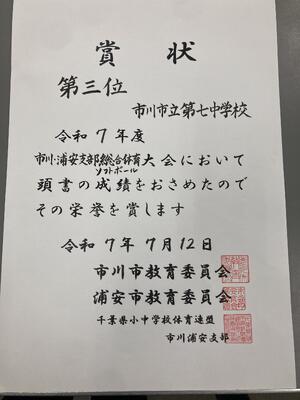 賞状
第三位
市川市立第七中学校
令和7年度
市川・浦安支部総合体育大会において
ソフトボール
頭書の成績をおさめたので
その栄誉を賞します
令和7年7月12日
市川市教育委員会
浦安市教育委員会
千葉県小中学校体育連盟
市川浦安支部